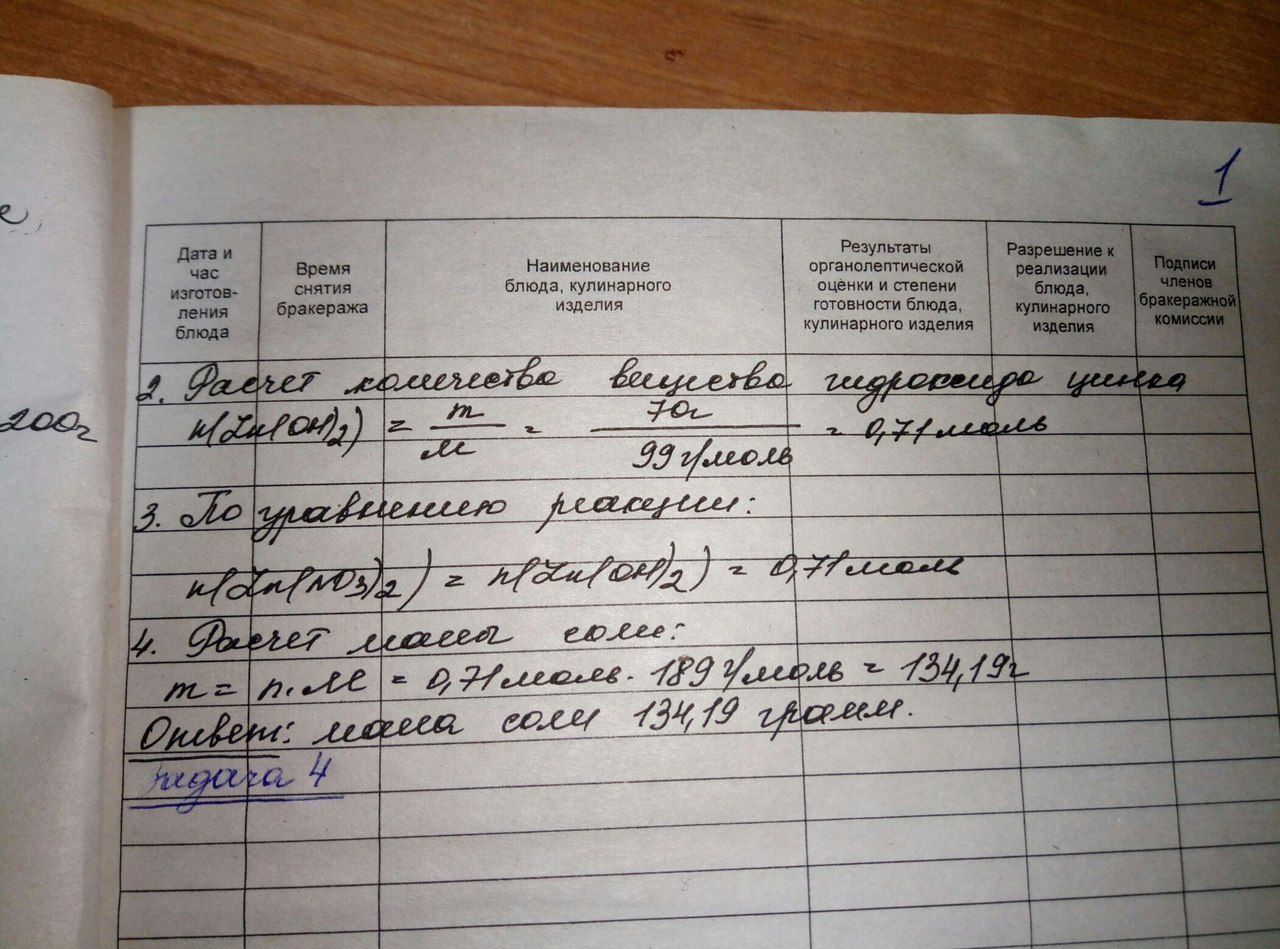 1
е,
200г
Дата и
час
изготов-
ления
блюда
Время
снятия
бракеража
Наименование
блюда, кулинарного
изделия
Результаты
органолептической
оценки и степени
готовности блюда,
кулинарного изделия
Разрешение к
реализации
блюда,
кулинарного
изделия
Подписи
членов
бракеражной
комиссии
2. Расчет количества вещества гидроксида цинка
n(Zn(OH)2) = m/M = 70г/99 г/моль = 0,71 моль
3. По уравнению реакции:
n(Zn(NO3)2) = n(Zn(OH)2) = 0,71 моль
4. Расчет массы соли:
m = n·M = 0,71 моль · 189 г/моль = 134,19г
Ответ: масса соли 134,19 грамм.
Задача 4